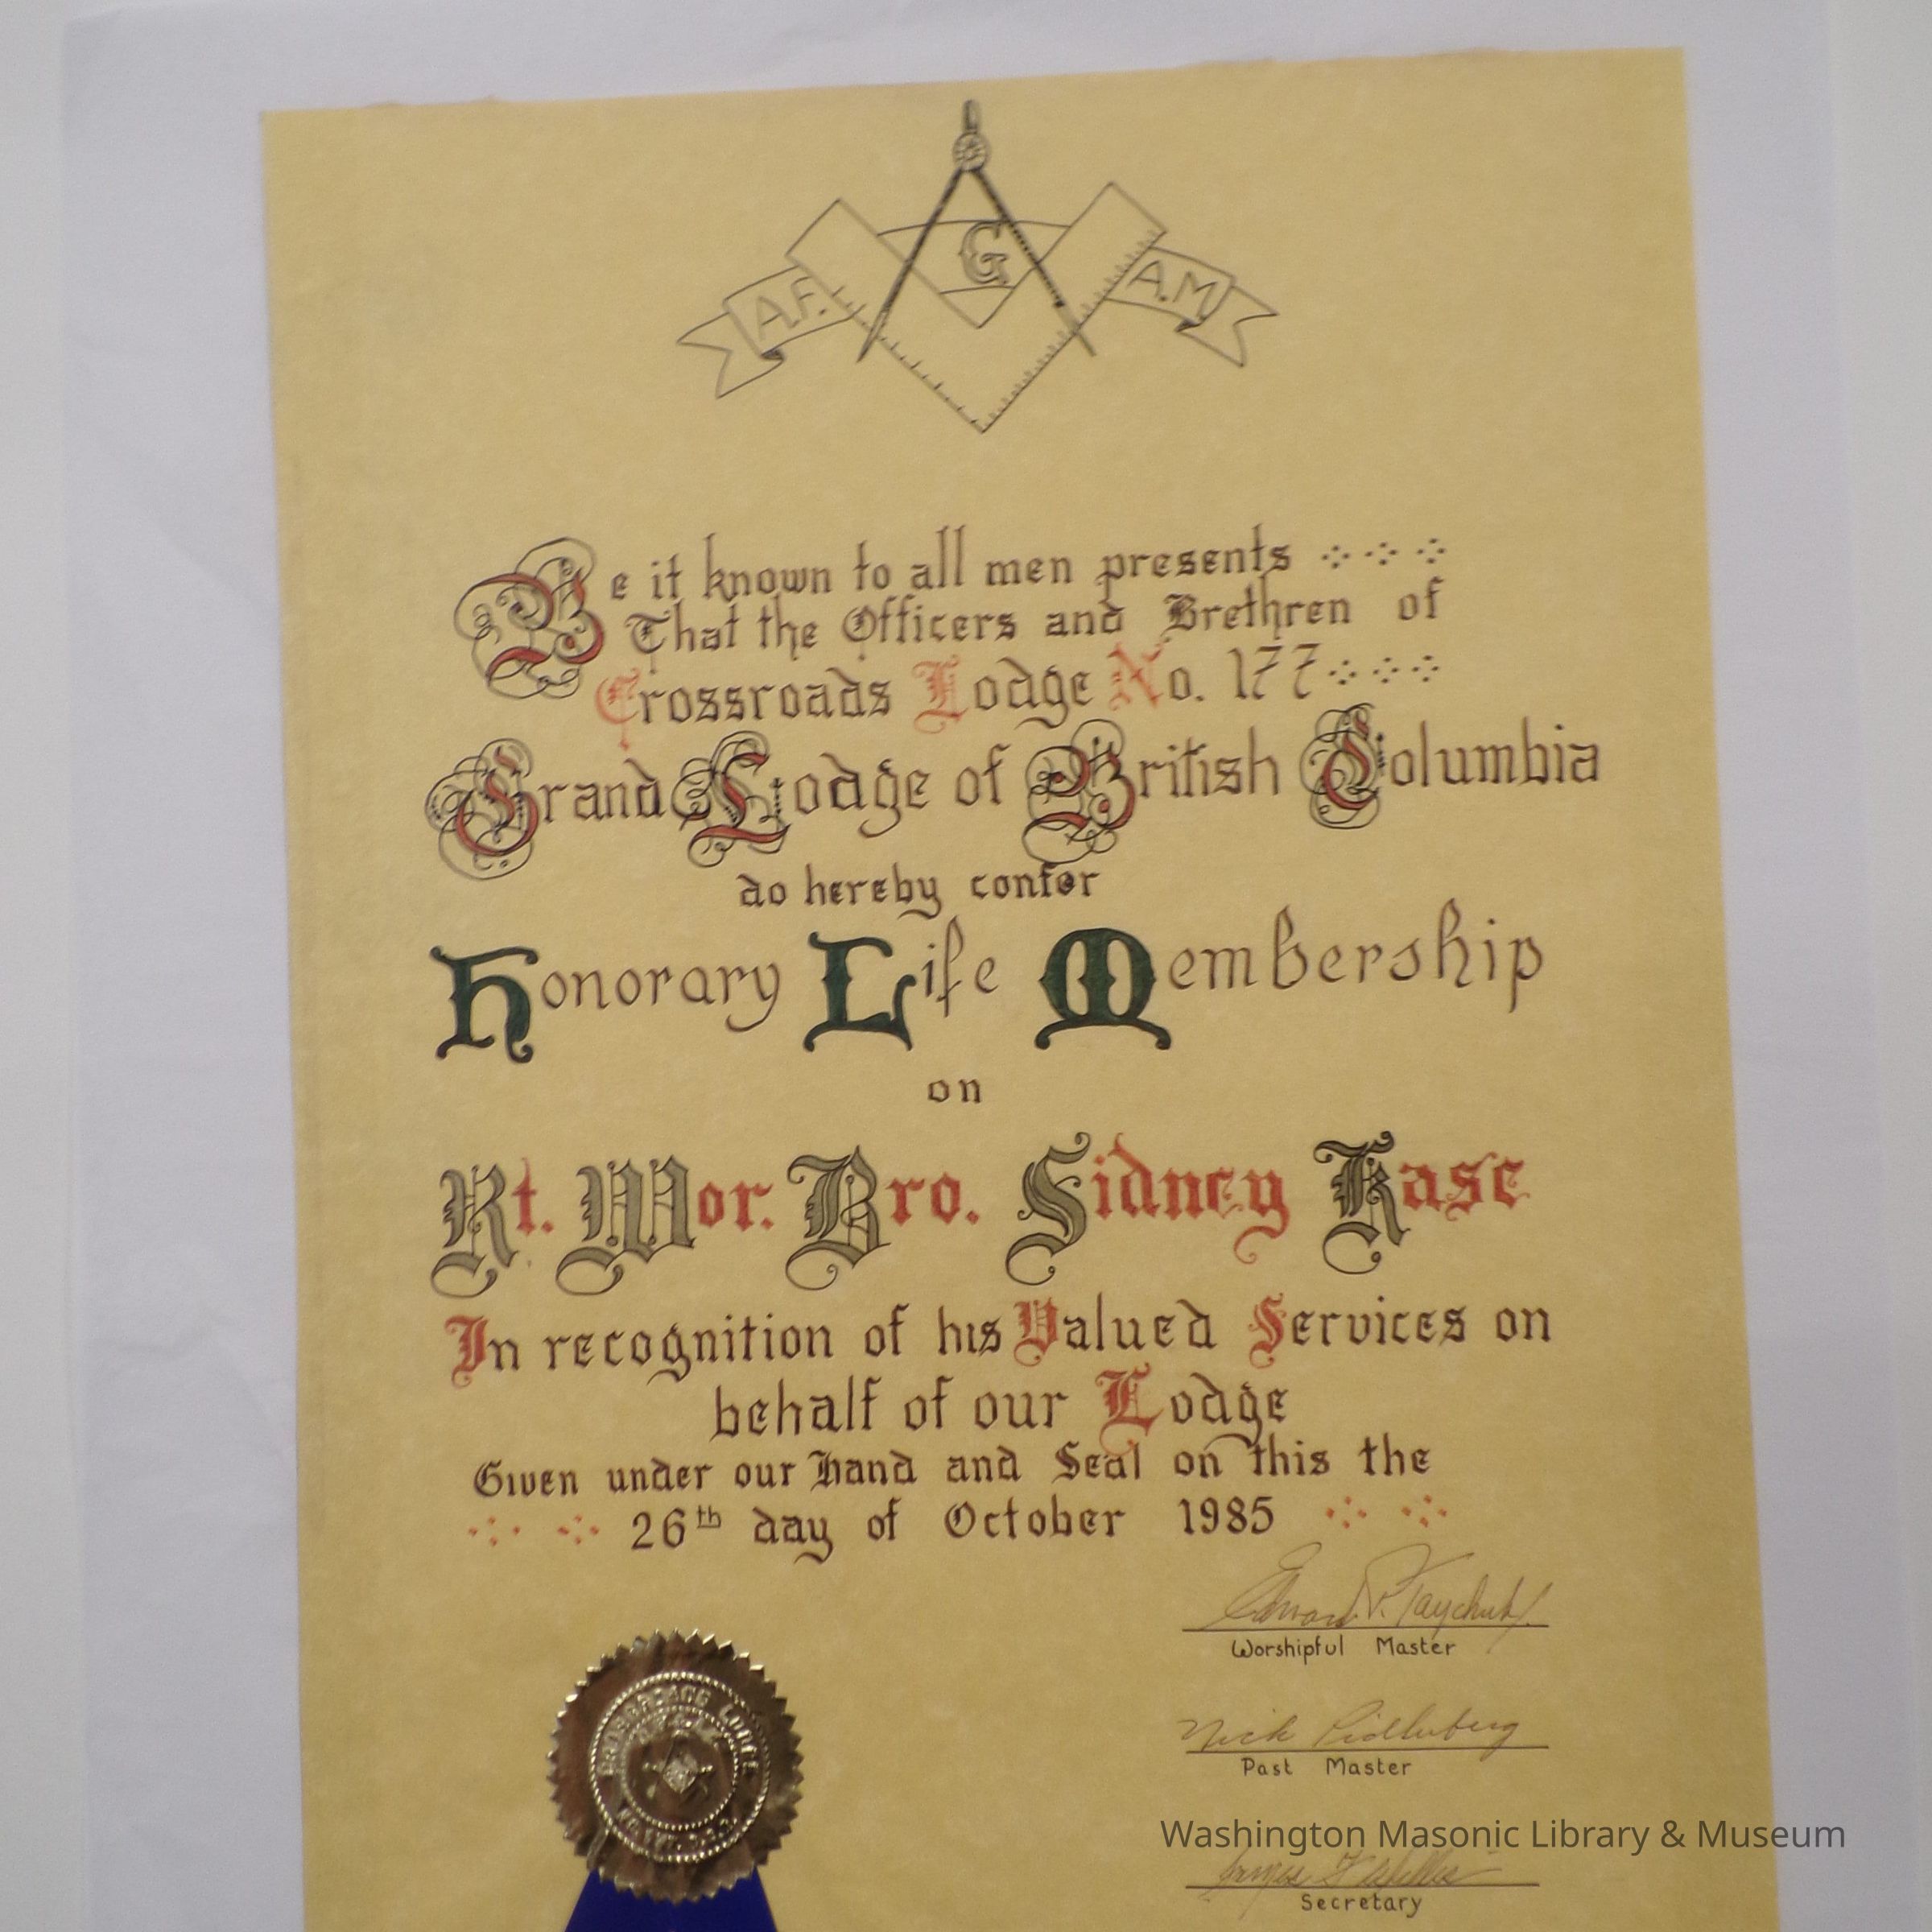 G
A.F.
A.M
Be it known to all men presents
That the Officers and Brethren of
Crossroads Lodge No. 177
Grand Lodge of British Columbia
do hereby confer
Honorary Life Membership
on
Rt. Wor. Bro. Sidney Kase
In recognition of his Valued Services on
behalf of our Lodge
Given under our Hand and Seal on this the
26th day of October 1985
Worshipful Master
Nick
Past Master
Washington Masonic Library & Museum
James
Secretary
CROSSROADS LODGE